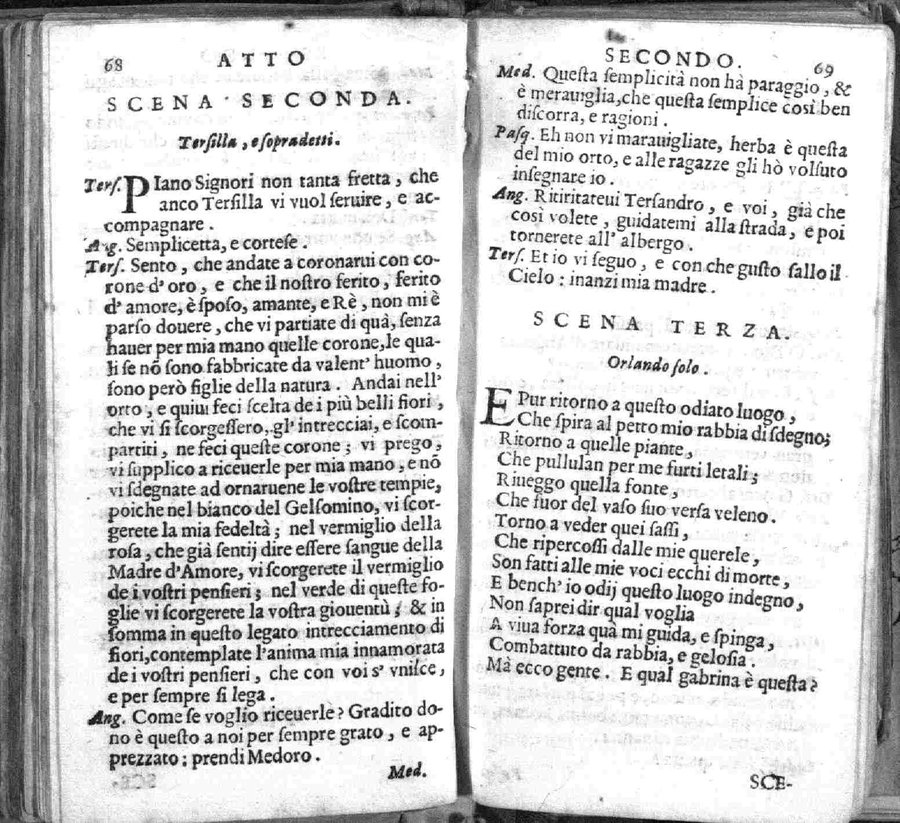 68 ATTO
SCENA SECONDA.
Tersilla, e sopradetti.
Ters. PIano Signori non tanta fretta, che
anco Tersilla vi vuol seruire, e ac-
compagnare.
Ang. Semplicetta, e cortese.
Ters. Sento, che andate a coronarui con co-
rone d'oro, e che il nostro ferito, ferito
d'amore, è sposo, amante, e Rè, non mi è
parso douere, che vi partiate di quà, senza
hauer per mia mano quelle corone, le qua-
li se nō sono fabbricate da valent' huomo,
sono però figlie della natura. Andai nell'
orto, e quiui feci scelta de i più belli fiori,
che vi si scorgessero, gl' intrecciai, e scom-
partiti, ne feci queste corone; vi prego,
vi supplico a riceuerle per mia mano, e nō
vi sdegnate ad ornaruene le vostre tempie,
poiche nel bianco del Gelsomino, vi scor-
gerete la mia fedeltà; nel vermiglio della
rosa, che già sentij dire essere sangue della
Madre d'Amore, vi scorgerete il vermiglio
de i vostri pensieri; nel verde di queste fo-
glie vi scorgerete la vostra giouentù; & in
somma in questo legato intrecciamento di
fiori, contemplate l'anima mia innamorata
de i vostri pensieri, che con voi s' vnisce,
e per sempre si lega.
Ang. Come se voglio riceuerle? Gradito do-
no è questo a noi per sempre grato, e ap-
prezzato; prendi Medoro.
Med.
SECONDO. 69
Med. Questa semplicità non hà paraggio, &
è merauiglia, che questa semplice così ben
discorra, e ragioni.
Pasq. Eh non vi marauigliate, herba è questa
del mio orto, e alle ragazze gli hò volsuto
insegnare io.
Ang. Ritiriteui Tersandro, e voi, già che
così volete, guidatemi alla strada, e poi
tornerete all' albergo.
Ters. Et io vi seguo, e con che gusto sallo il
Cielo: inanzi mia madre.
SCENA TERZA.
Orlando solo.
EPur ritorno a questo odiato luogo,
Che spira al petto mio rabbia di sdegno;
Ritorno a quelle piante,
Che pullulan per me furti letali;
Riueggo quella fonte,
Che fuor del vaso suo versa veleno.
Torno a veder quei sassi,
Che ripercossi dalle mie querele,
Son fatti alle mie voci ecchi di morte,
E bench' io odij questo luogo indegno,
Non saprei dir qual voglia
A viua forza quà mi guida, e spinga,
Combattuto da rabbia, e gelosia.
Mà ecco gente. E qual gabrina è questa?
SCE-